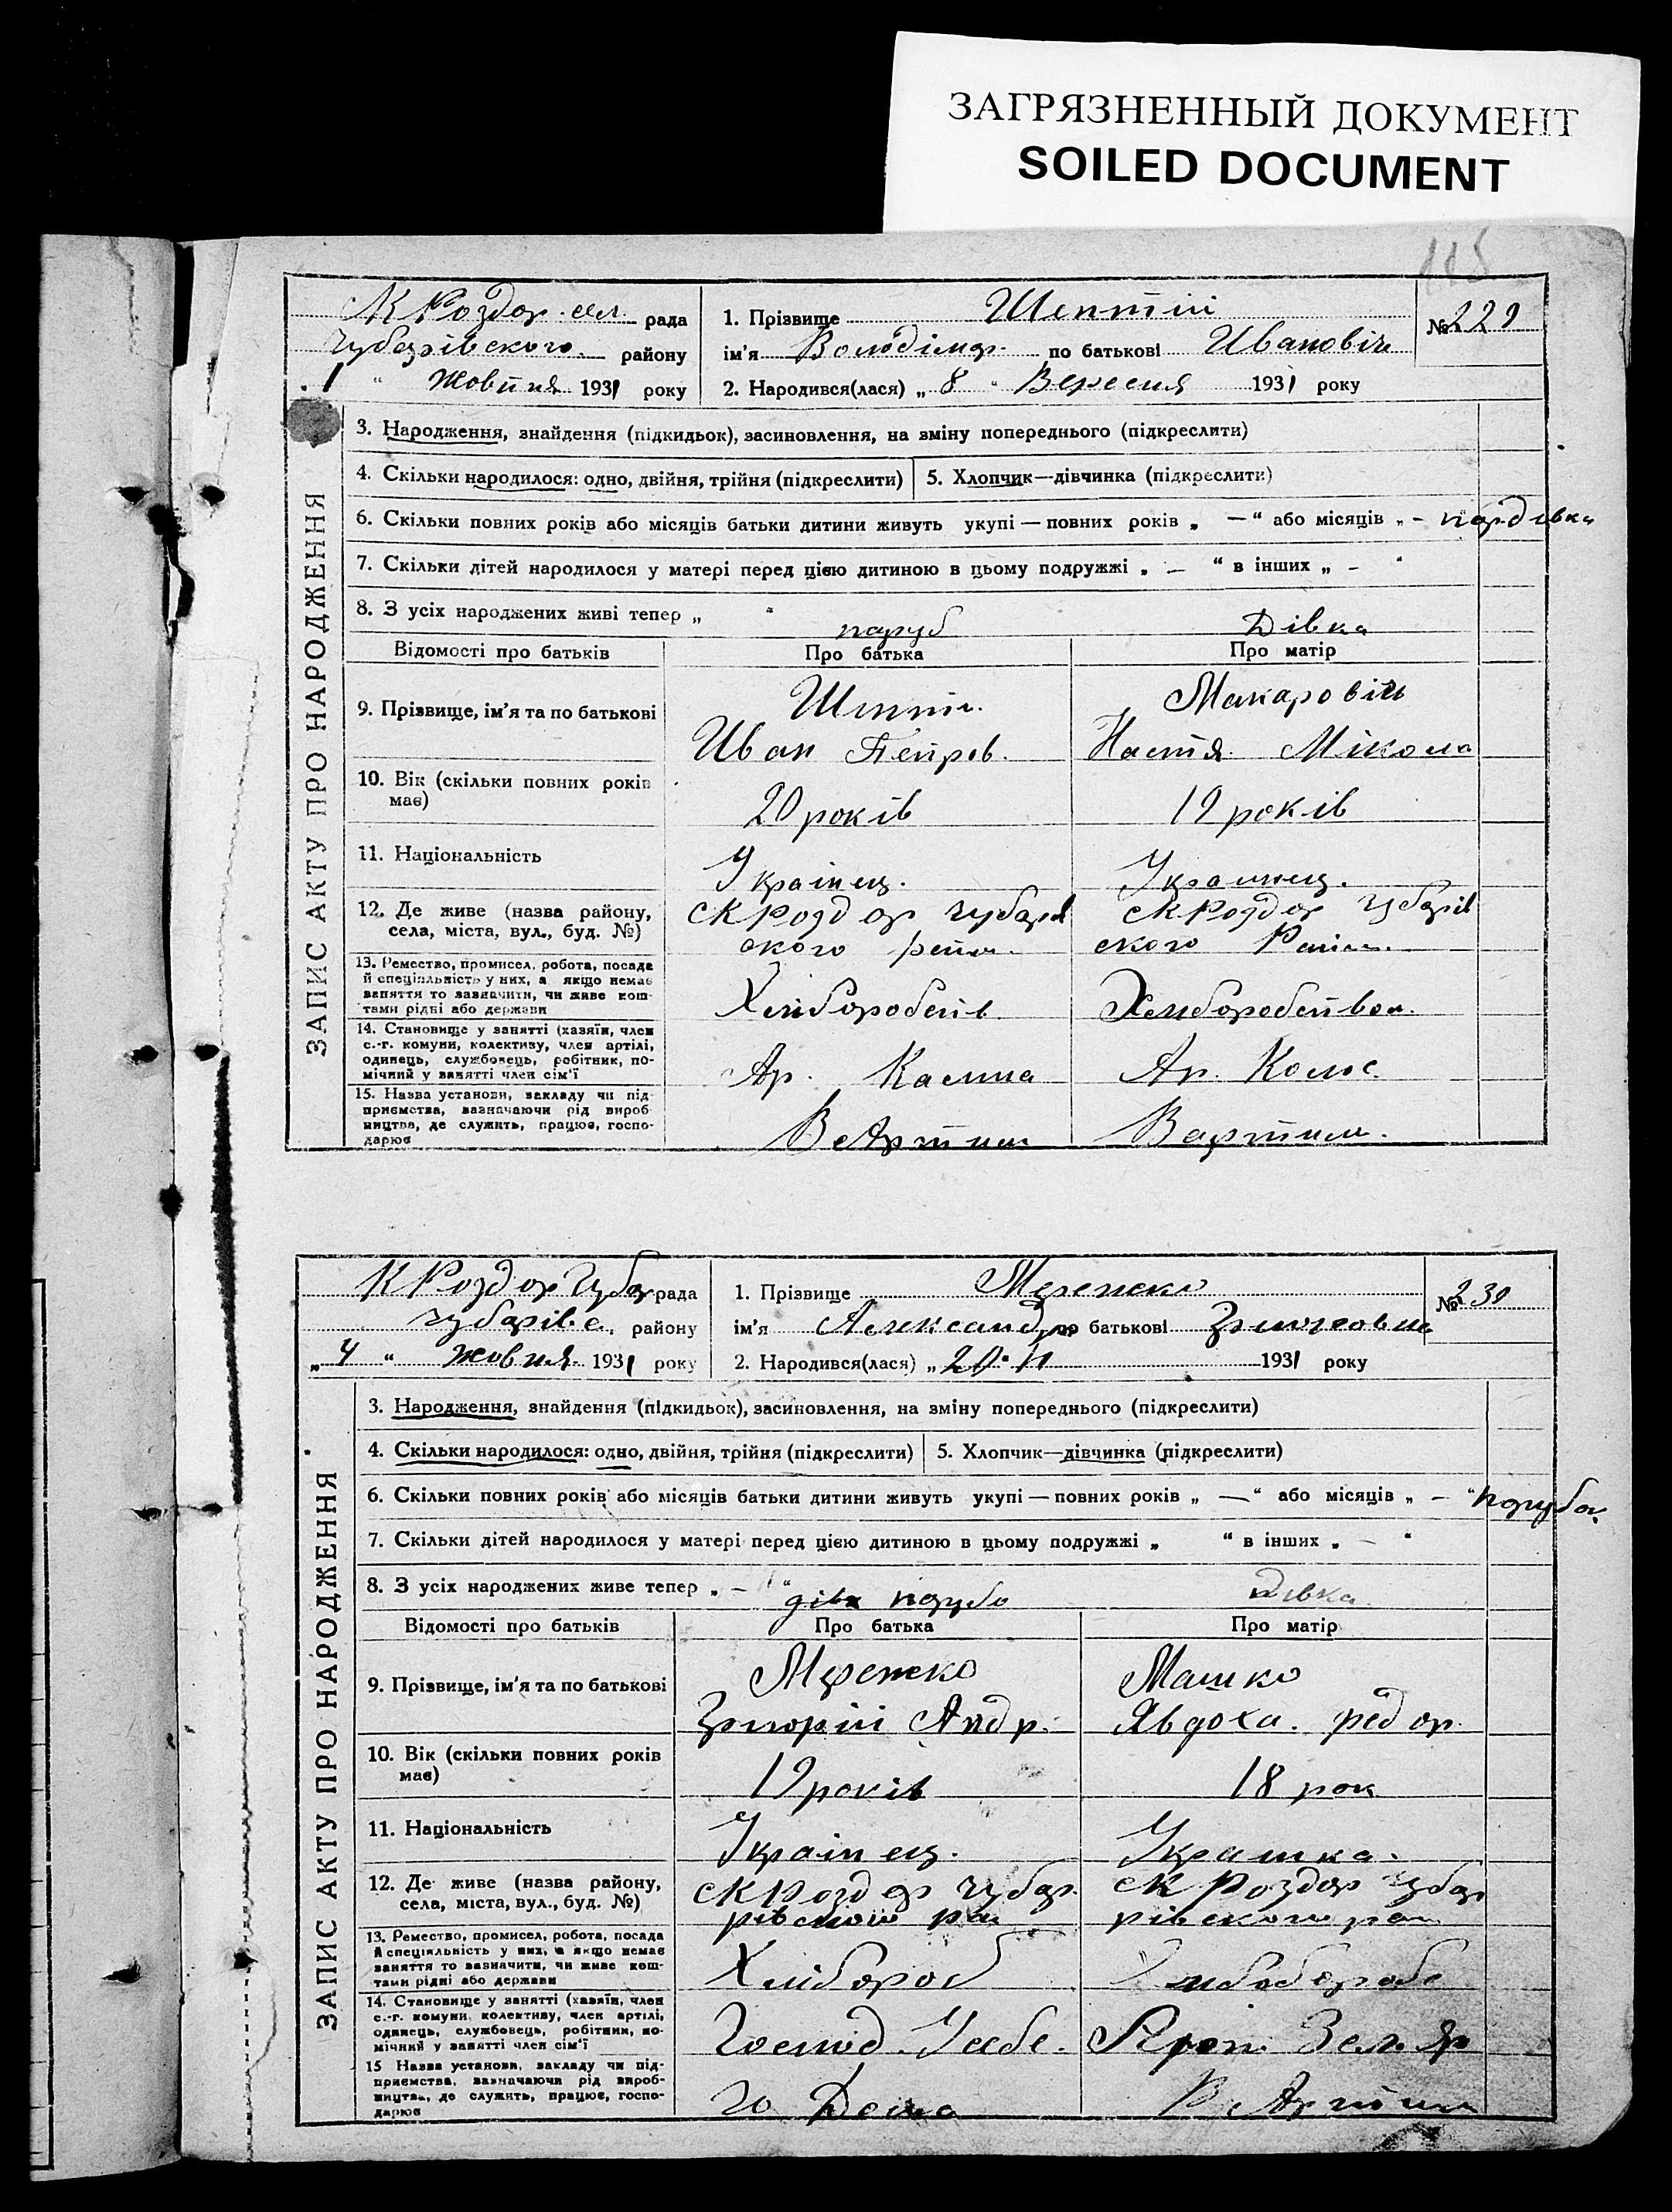 ЗАГРЯЗНЕННЫЙ ДОКУМЕНТ
SOILED DOCUMENT
115
К Роздор сел. рада
Чубарівского району
1 " Жовтня 1931 року
1. Прізвище Шептій
№ 229
ім'я Володімир по батькові Иванович
2. Народився(лася) „ 8 " Вересня 1931 року
ЗАПИС АКТУ ПРО НАРОДЖЕННЯ
3. Народження, знайдення (підкидьок), засиновлення, на зміну попереднього (підкреслити)
4. Скільки народилося: одно, двійня, трійня (підкреслити)
5. Хлопчик—дівчинка (підкреслити)
6. Скільки повних років або місяців батьки дитини живуть укупі — повних років „ — " або місяців „ –
7. Скільки дітей народилося у матері перед цією дитиною в цьому подружжі „ — " в інших „ – "
8. З усіх народжених живі тепер „ "
паруб Дівка
Відомості про батьків Про батька Про матір
9. Прізвище, ім'я та по батькові
Шептій Макаровіч
Иван Петров. Настя Мікола
10. Вік (скільки повних років має)
20 років 19 років
11. Національність
Украінец. Украинец.
12. Де живе (назва району, села, міста, вул., буд. №)
С К Роздор Чубарів С К Роздор Чубарів
ского район. ского Район.
13. Ремество, промисел, робота, посада
й спеціяльність у них, а якщо немає
заняття то зазначити, чи живе кош-
тами рідні або держави
Хліборобств. Хлиборобство.
14. Становище у занятті (хазяїн, член
с.-г. комуни, колективу, член артілі,
одинець, службовець, робітник, по-
мічний у занятті член сім'ї
Ар. Ар.
15. Назва установи, закладу чи під-
приємства, зазначаючи рід вироб-
ництва, де служить, працює, госпо-
дарює
В Артили В Артили.
К Роздор Чубар рада
Чубарівс. району
„ 4 " Жовтня 1931 року
1. Прізвище
№ 230
ім'я Александр по батькові
2. Народився(лася) „ 1931 року
ЗАПИС АКТУ ПРО НАРОДЖЕННЯ
3. Народження, знайдення (підкидьок), засиновлення, на зміну попереднього (підкреслити)
4. Скільки народилося: одно, двійня, трійня (підкреслити)
5. Хлопчик—дівчинка (підкреслити)
6. Скільки повних років або місяців батьки дитини живуть укупі — повних років „ — " або місяців „ – " паруба
7. Скільки дітей народилося у матері перед цією дитиною в цьому подружжі „ " в інших „ – "
8. З усіх народжених живе тепер „ – "
парубо дівка
Відомості про батьків Про батька Про матір
9. Прізвище, ім'я та по батькові
Машко
Григорій Андр. Явдоха. Федор.
10. Вік (скільки повних років має)
19 років 18 рок
11. Національність
Украінец. Украинка.
12. Де живе (назва району, села, міста, вул., буд. №)
С К Роздор Чубар С К Роздор Чубар
рівского ра рівского ра
13. Ремество, промисел, робота, посада
й спеціяльність у них, а якщо немає
заняття то зазначити, чи живе кош-
тами рідні або держави
Хлібороб
14. Становище у занятті (хазяїн, член
с.-г. комуни, колективу, член артілі,
одинець, службовець, робітник, по-
мічний у занятті член сім'ї
Господ.
15 Назва установи, закладу чи під-
приємства, зазначаючи рід вироб-
ництва, де служить, працює, госпо-
дарює
В Артили